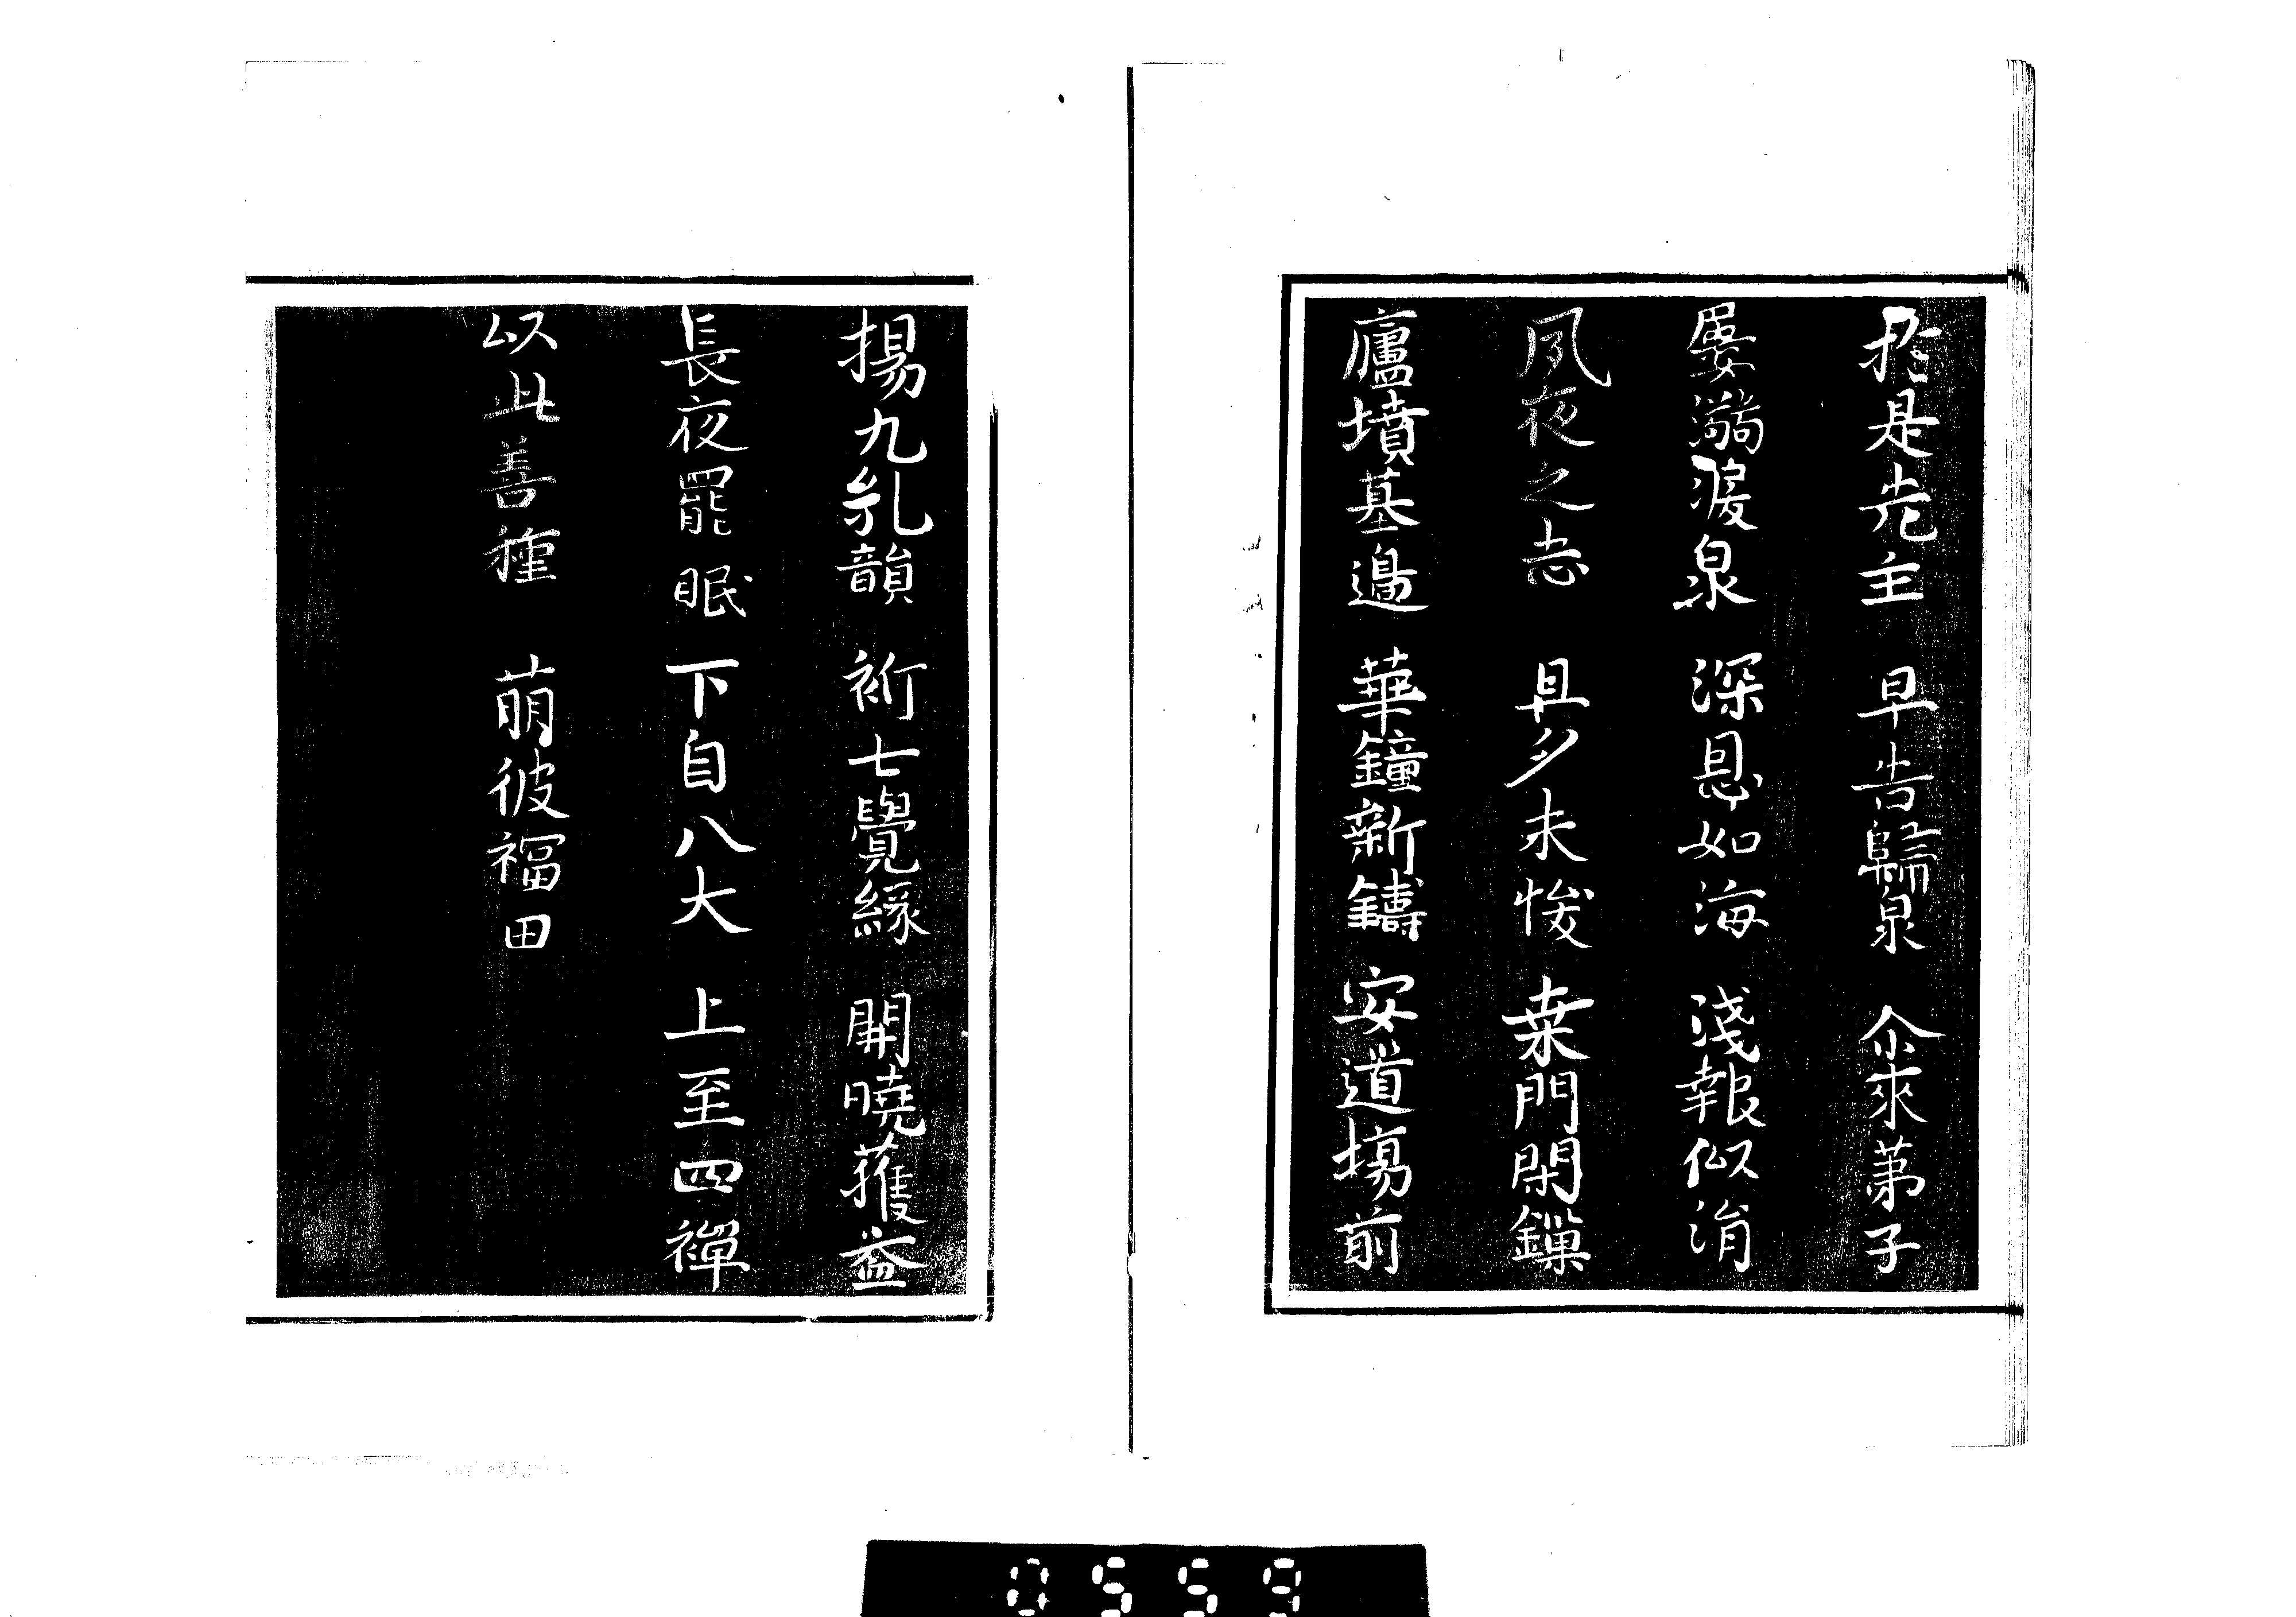 於是先主　早告歸泉　尒來弟子
屢溺淚泉　深恩如海　淺報似涓
夙夜之志　旦夕未悛　桒門閑鏁
廬墳墓邊　華鐘新鑄　安道場前
揚九乳韻　衍七覺緣　開曉蒦益
長夜罷眠　下自八大　上至四禪
以此善種　萌彼福田
0559